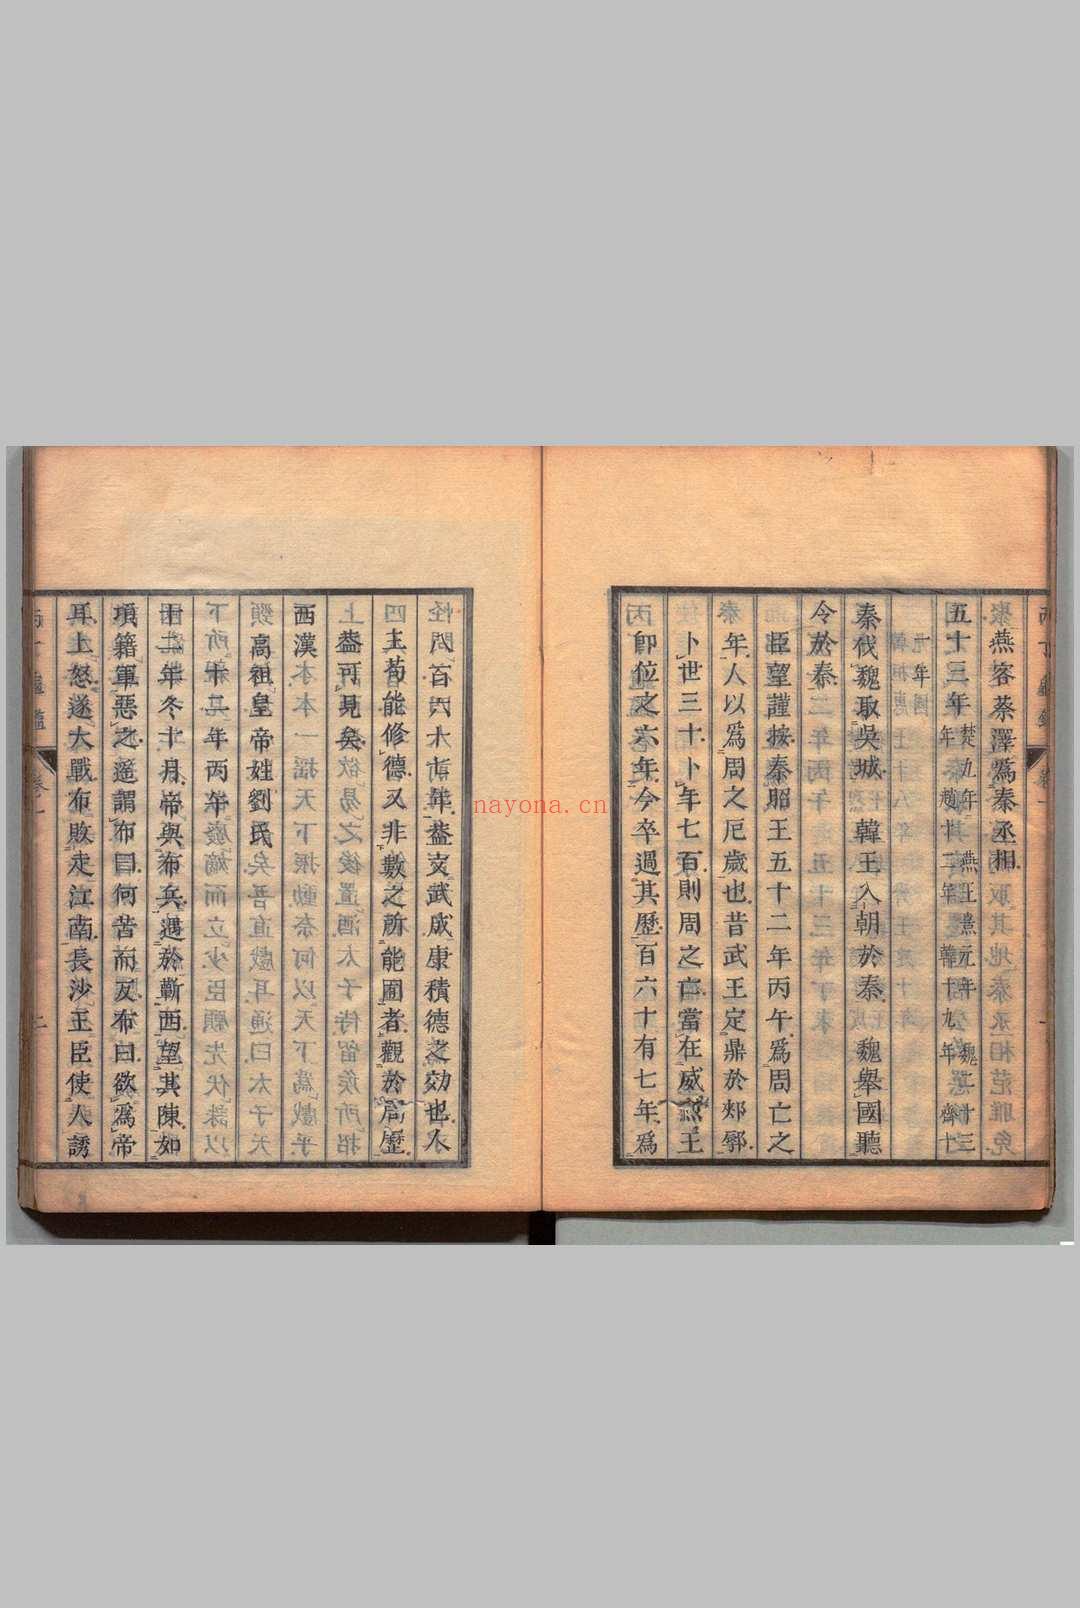 燕客蔡澤爲秦丞相
五十三年楚九年燕王喜元年魏二十三年趙十二年韓十九年齊十
一年國
秦伐魏取吳城韓王入朝於秦魏舉國聽
令於秦
臣望謹按秦昭王五十二年丙午爲周亡之
年人以爲周之厄歲也昔武王定鼎於郟鄏
卜世三十卜年七百則周之亡當在威烈王
卽位之六年今卒過其歷百六十有七年爲
百四十七年蓋文武成康積德之効也人
主苟能修德又非數之所能囿者觀於周歷
蓋可見矣
西漢
高祖皇帝姓劉氏
十二年丙午
十二年冬十月帝與布兵遇於蘄西望其陳如
項籍軍惡之遙謂布曰何苦而反布曰欲爲帝
耳上怒遂大戰布敗走江南長沙王臣使人誘
nayona.cn